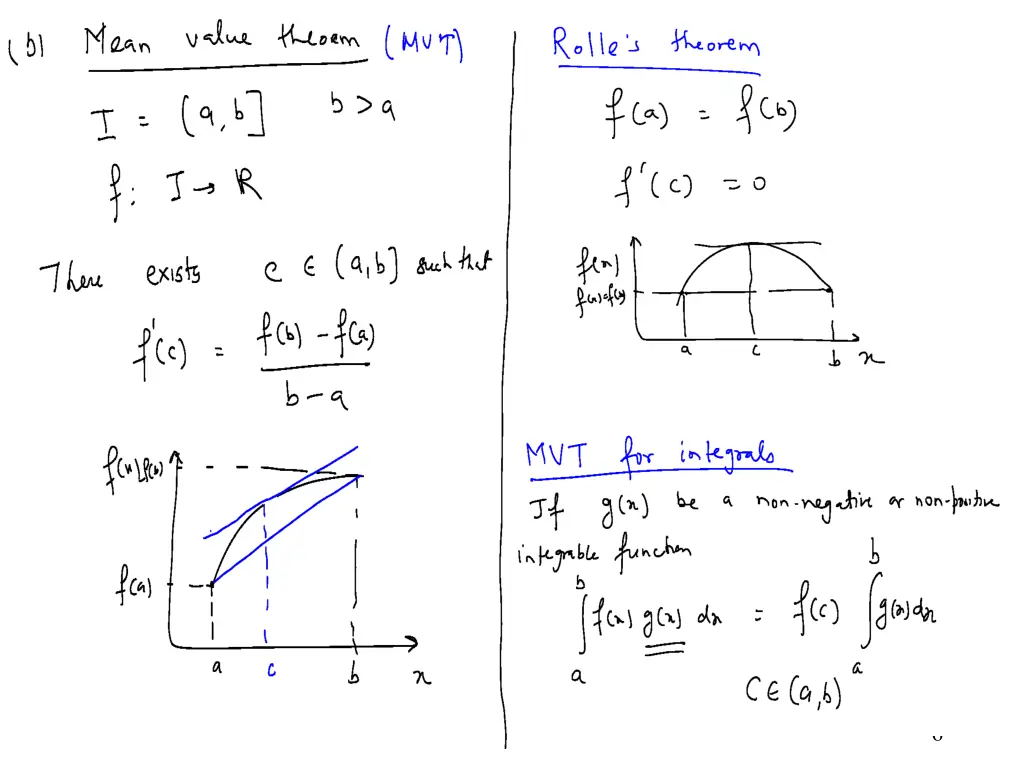 (b) Mean value theoem (MVT)
I = (a,b] b>a
f: I → R
There exists c ∈ (a,b] such that
f'(c) = f(b) - f(a)
b-a
f(x) f(b)
f(a)
a c b x
Rolle's theorem
f(a) = f(b)
f'(c) = 0
f(x)
f(a)=f(b)
a c b x
MVT for integrals
If g(x) be a non-negative or non-positive
integrable function
∫_a^b f(x) g(x) dx = f(c) ∫_a^b g(x) dx
C ∈ (a,b)